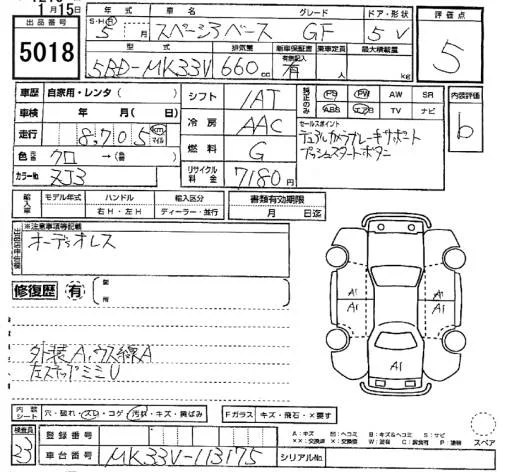 月15日
出品番号
5018
年式 車名 グレード ドア・形状
S・H・R 5月 スペーシアベース GF 5 V
型式 排気量 新車保証書 乗車定員 最大積載量
5BD-MK33V 660cc 有 人 kg
評価点
5
内装評価
b
車歴 自家用・レンタ( )
車検 年 月( 日)
走行 8,705 km マイル
色 クロ →( )
カラーNo. ZJ3
シフト IAT
冷房 AAC
燃料 G
リサイクル料金 7180円
純正のみ PS PW AW SR
ABS エアB TV ナビ
セールスポイント
デュアルカメラブレーキサポート
プッシュスタートボタン
輸入車 モデル年式 ハンドル 輸入区分
右H・左H ディーラー・並行
書類有効期限
月 日迄
※注意事項等記載
オーディオレス
修復歴 有
箇所
外装A、ウス線A
左ステップミニU
A1
A1
A1
A1
内装シート 穴・破れ・スレ・コゲ 汚れ・キズ・黄ばみ
Fガラス キズ・飛石・×要す
検査員
33
登録番号
車台番号 MK33V-113175
シリアルNo.
A:キズ
スペア